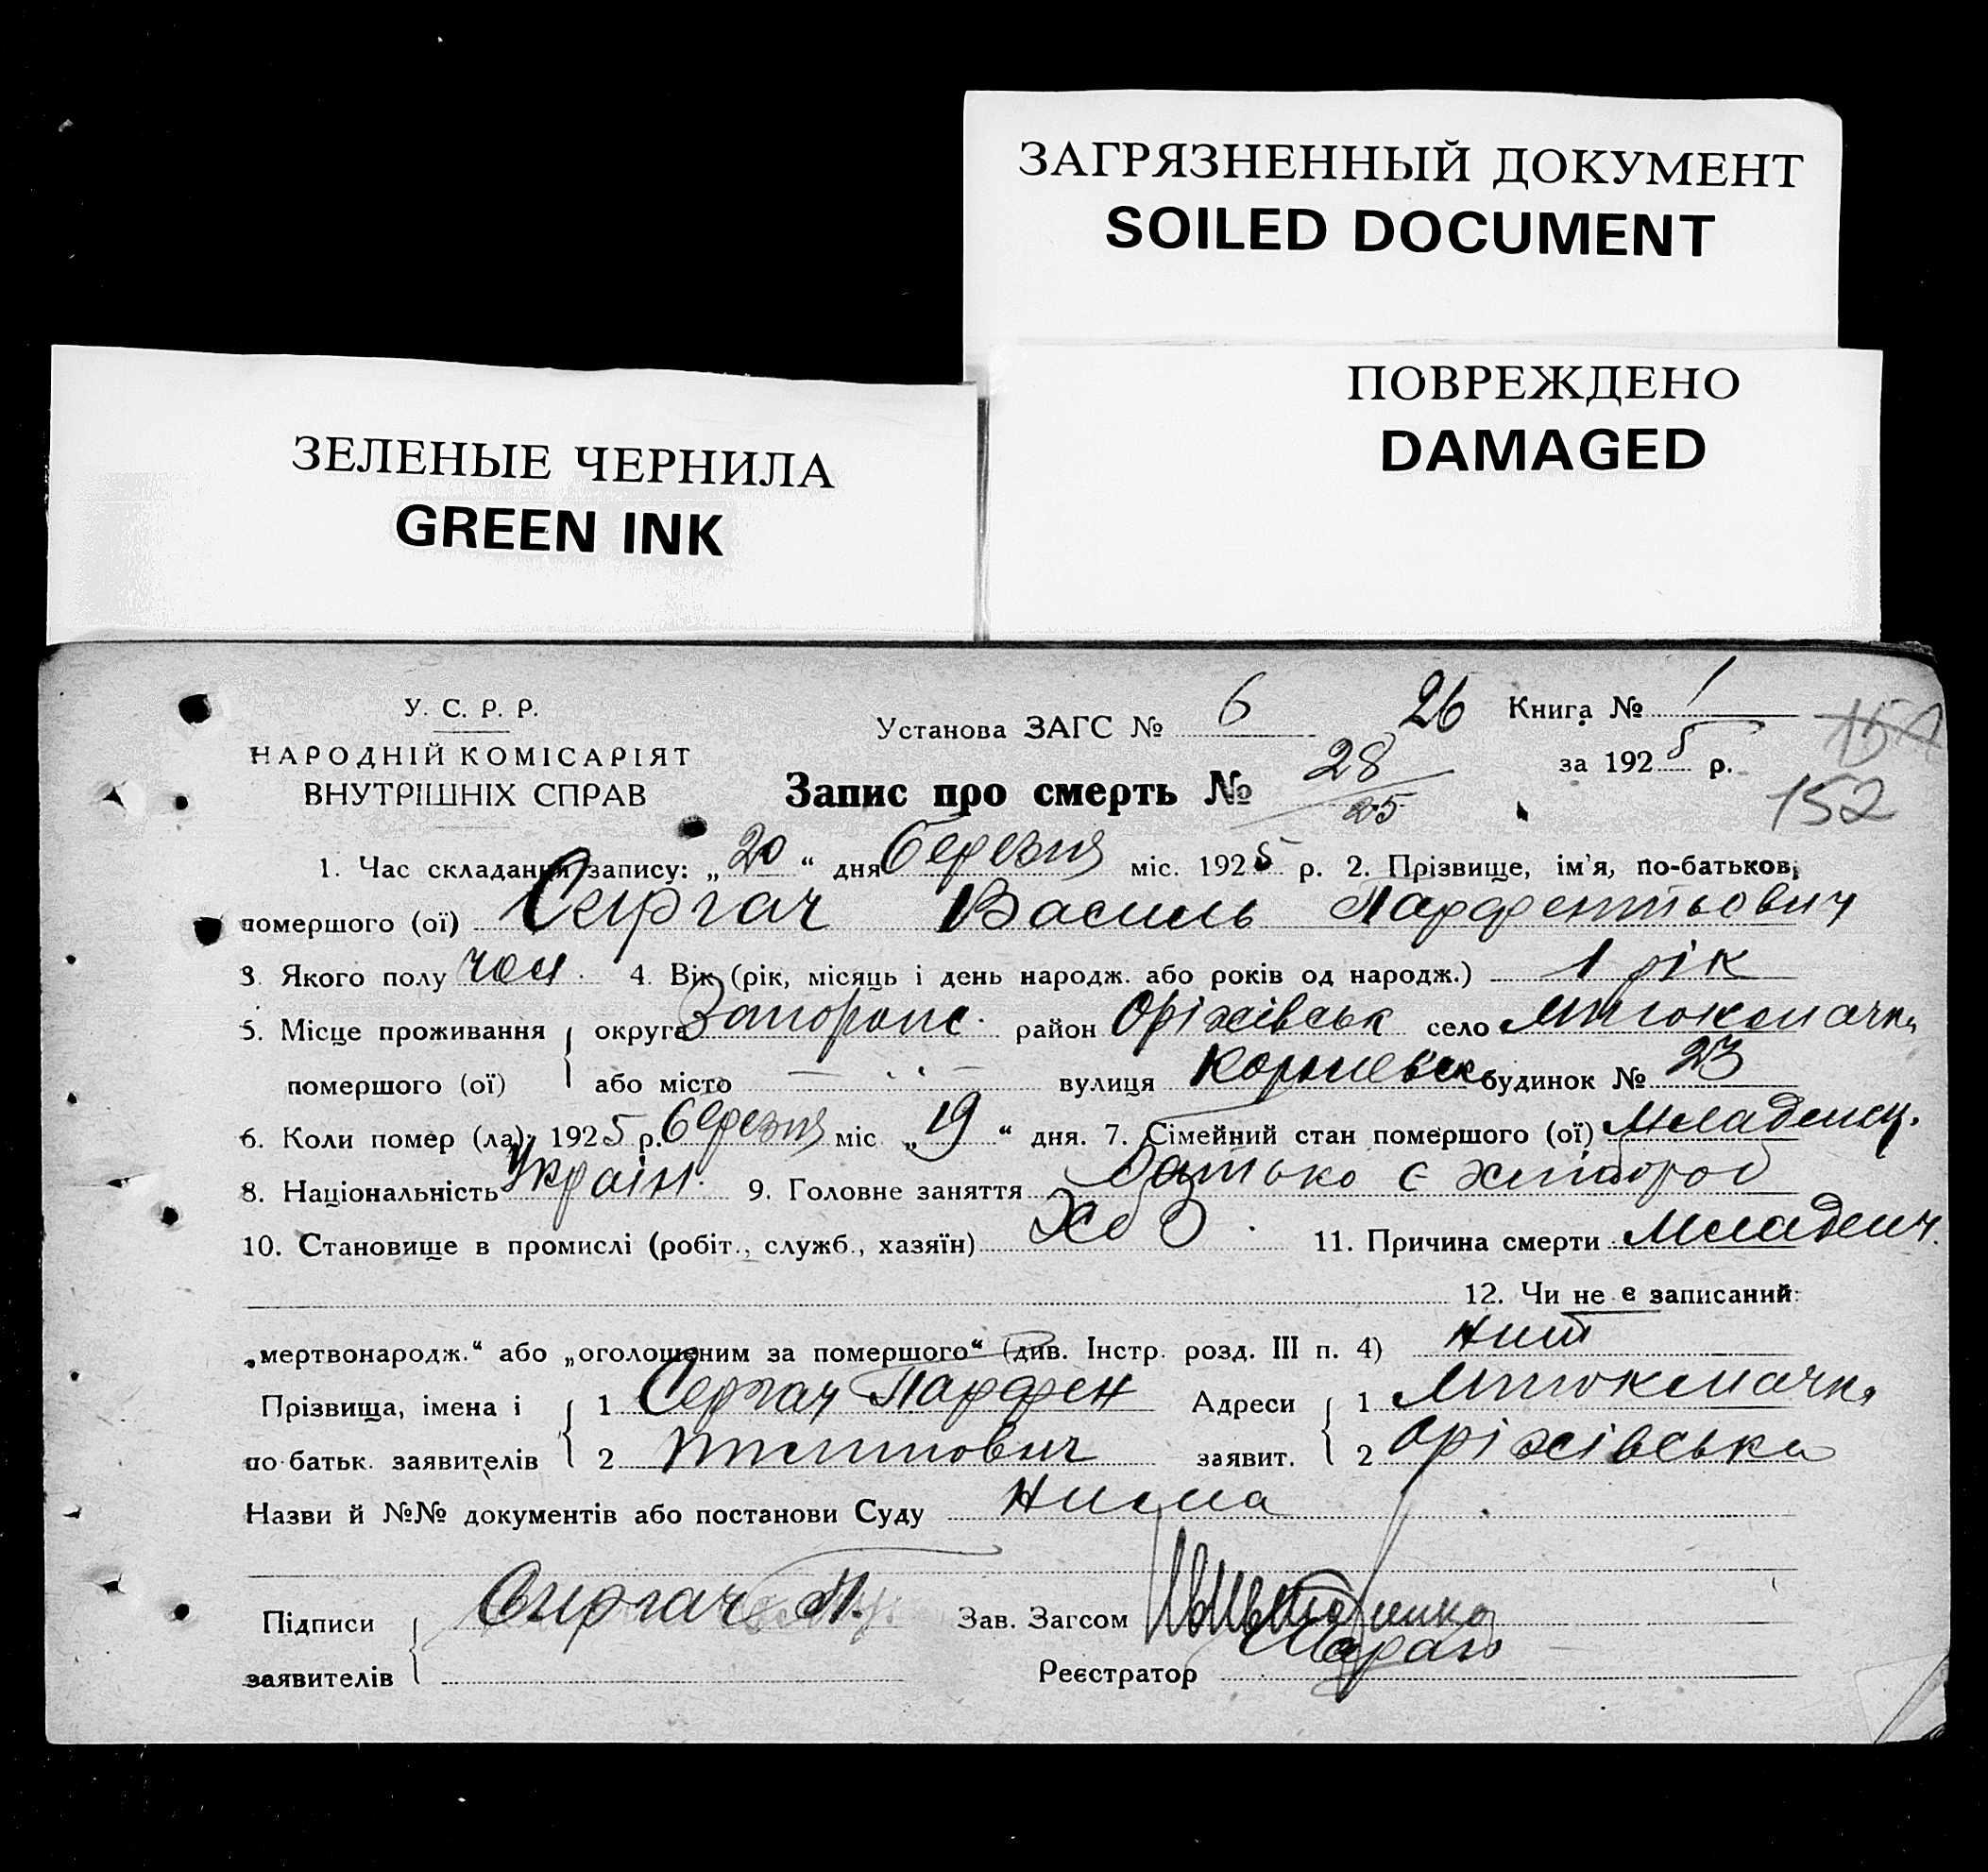 ЗАГРЯЗНЕННЫЙ ДОКУМЕНТ
SOILED DOCUMENT
ПОВРЕЖДЕНО
DAMAGED
ЗЕЛЕНЫЕ ЧЕРНИЛА
GREEN INK
У. С. Р. Р.
НАРОДНІЙ КОМІСАРІЯТ
ВНУТРІШНІХ СПРАВ
Установа ЗАГС № 6 26 Книга № 1
за 1925 р.
152
Запис про смерть № 28
25
1. Час складання запису: „20“ дня березня міс. 1925 р. 2. Прізвище, ім'я, по-батьков,
помершого (ої) Сиргач Василь Парфентьович
3. Якого полу чол. 4. Вік (рік, місяць і день народж. або років од народж.) 1 рік
5. Місце проживання округа Запоріж. район Оріхівськ село Мтокмачка
помершого (ої) або місто — вулиця будинок № 23
6. Коли помер (ла): 1925 р. березня міс „19“ дня. 7. Сімейний стан помершого (ої) Младенец.
8. Національність Україн. 9. Головне заняття батько є хлібороб
10. Становище в промислі (робіт., служб., хазяїн) 11. Причина смерти Младенч.
12. Чи не є записаний
„мертвонародж.“ або „оголошеним за помершого“ (див. Інстр. розд. III п. 4) нит
Прізвища, імена і 1 Сергач Парфен Адреси 1 Мтокмачка
по-батьк. заявителів 2 заявит. 2 Оріхівська
Назви й №№ документів або постанови Суду Нима
Підписи Сиргач П. Зав. Загсом
заявителів Реєстратор